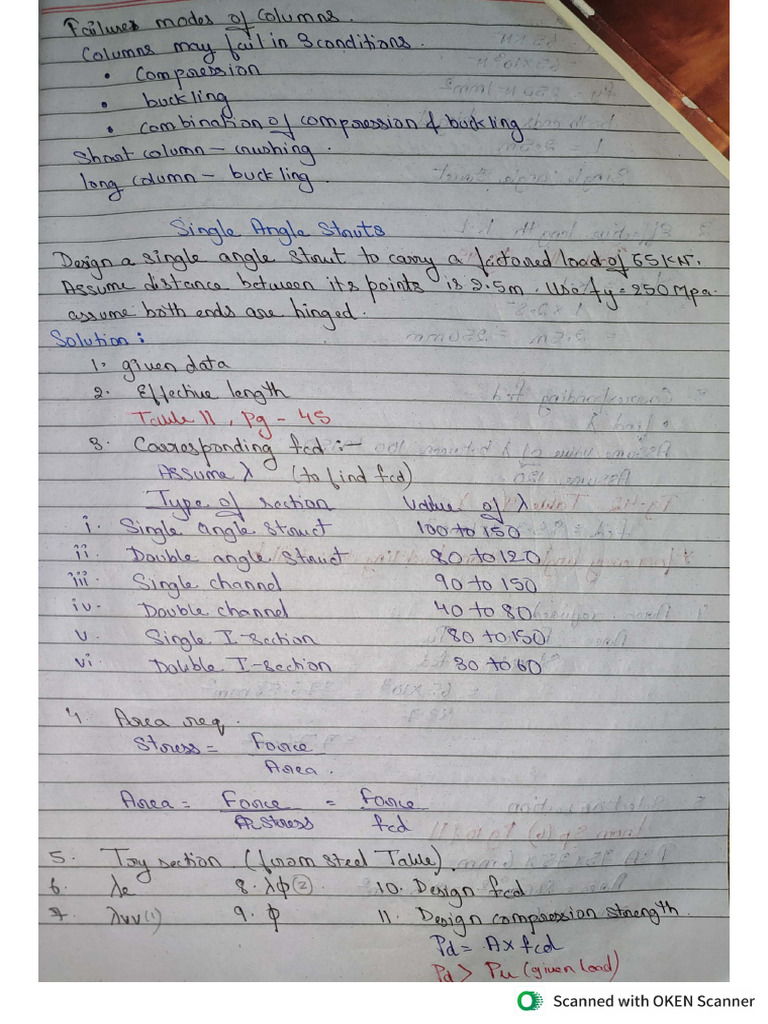 Failures modes of columns.
Columns may fail in 3 conditions.
• Compression
• buckling
• combination of compression & buckling
Short column - crushing.
long column - buckling.
Single Angle Struts
Design a single angle strut to carry a factored load of 65 KN.
Assume distance between its points is 2.5m. Use fy = 250 Mpa.
assume both ends are hinged.
Solution:
1. given data
2. Effective length
Table 11, Pg - 45
3. Corresponding fcd :-
Assume λ (to find fcd)
Type of section Value of λ
i. Single angle struct 100 to 150
ii. Double angle struct 80 to 120
iii. Single channel 90 to 150
iv. Double channel 40 to 80
v. Single I-section 80 to 150
vi. Double I-section 30 to 60
4. Area req.
Stress = Force / Area.
Area = Force / Stress = Force / fcd
5. Try section. (from steel Table).
6. λe 8. λφ(2) 10. Design fcd
7. λvv(1) 9. φ 11. Design compression strength.
Pd = A x fcd
Pd > Pu (given load)
Scanned with OKEN Scanner